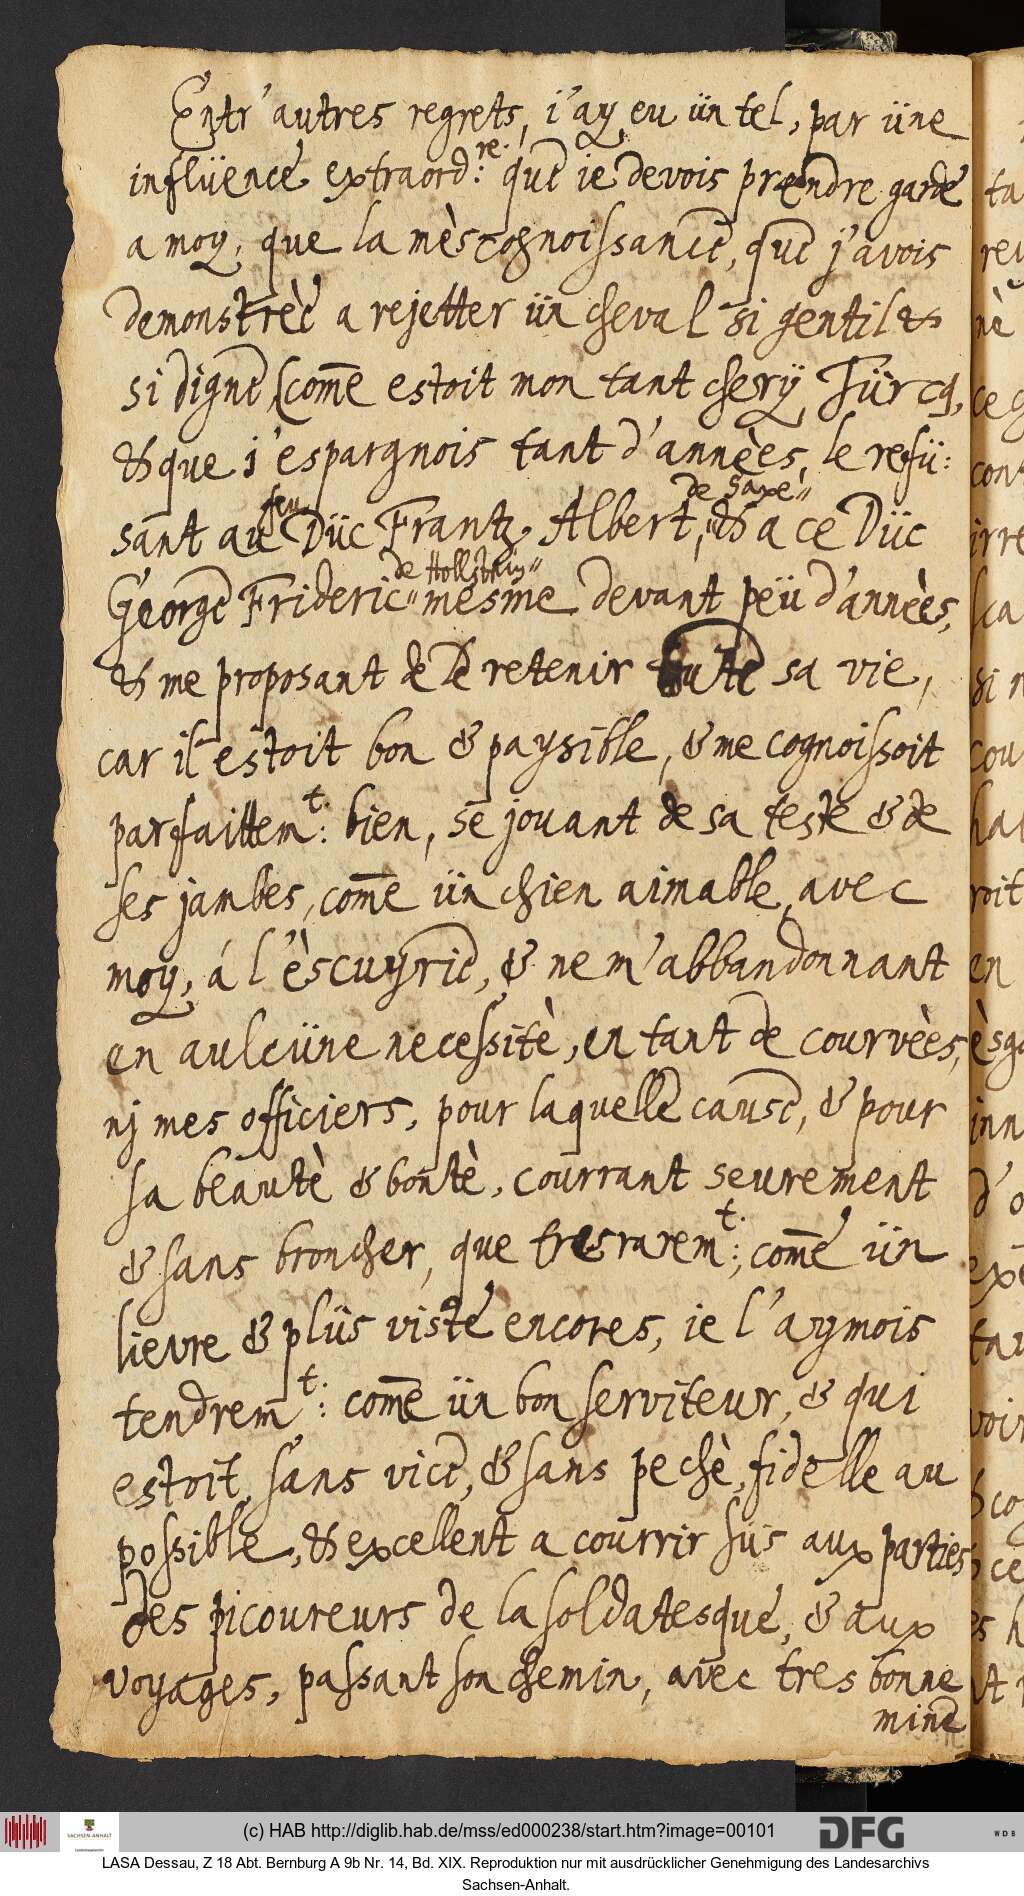 Entr'autres regrets, i'ay eu ün tel, par üne
inflüence extraord:re. que ie devois prendre garde
a moy, que la mèscognoissance, que j'avois
demonstrèe a rejetter ün cheval si gentil &
si digne, (come estoit mon tant chery Türcq,
& que i'espargnois tant d'annèes, le refü:
sant au feu Düc Frantz Albert, de Saxe" & a ce Düc
George Frideric" de Hollstein" mesme devant peü d'annèes,
& me proposant de le retenir toute sa vie,
car il estoit bon & paysible, & me cognoissoit
parfaittem:t. bien, se jouant de sa teste & de
ses jambes, come ün chien aimable, avec
moy, á l'èscuyrie, & ne m'abbandonnant
en aulcüne necessitè, en tant de courvèes,
nj mes officiers, pour laquelle cause, & pour
sa beautè & bontè, courrant seurement
& sans broncher, que tresrarem:t., come ün
lievre & plüs viste encores, ie l'aymois
tendrem:t. come ün bon serviteur, & qui
estoit, sans vice, & sans pechè, fidelle au
possible, & excellent a courrir sus aux parties
des picoureurs de la soldatesque, & aux
voyages, passant son chemin, avec tres bonne
mine
(c) HAB http://diglib.hab.de/mss/ed000238/start.htm?image=00101
SACHSEN-ANHALT
DFG
WDB
LASA Dessau, Z 18 Abt. Bernburg A 9b Nr. 14, Bd. XIX. Reproduktion nur mit ausdrücklicher Genehmigung des Landesarchivs
Sachsen-Anhalt.